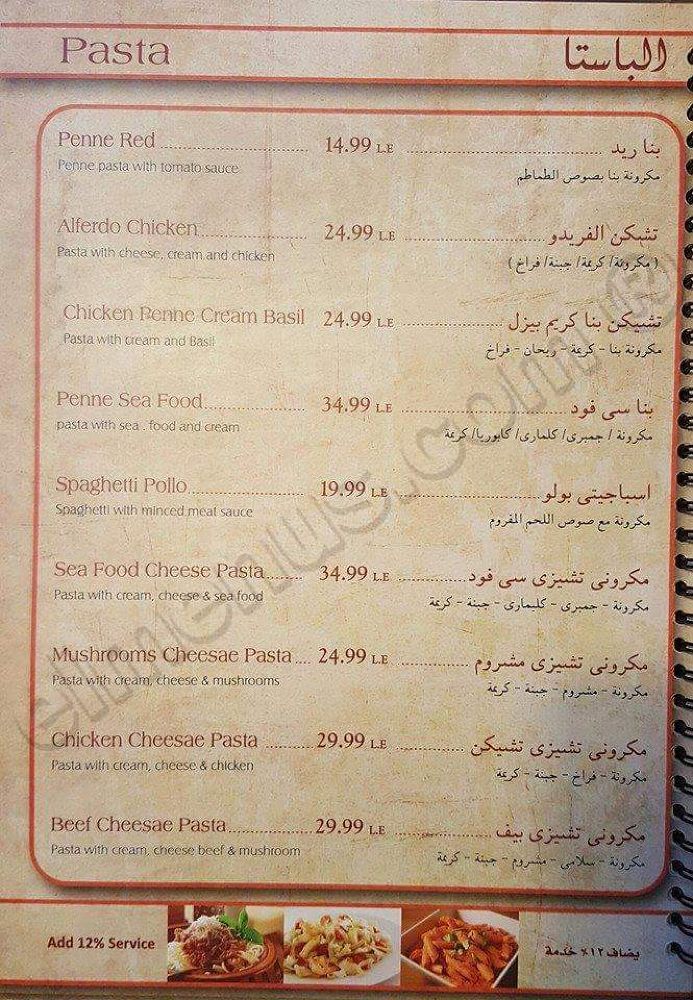 Pasta
الباستا
Penne Red ........ 14.99 L.E ........ بنا ريد
Penne pasta with tomato sauce
مكرونة بنا بصوص الطماطم
Alferdo Chicken ........ 24.99 L.E ........ تشيكن الفريدو
Pasta with cheese, cream and chicken
( مكرونة/ كريمة/ جبنة/ فراخ )
Chicken Penne Cream Basil 24.99 L.E ........ تشيكن بنا كريم بيزل
Pasta with cream and Basil
مكرونة بنا - كريمة - ريحان - فراخ
Penne Sea Food ........ 34.99 L.E ........ بنا سى فود
pasta with sea . food and cream
مكرونة / جمبرى/ كلمارى/ كابوريا/ كريمة
Spaghetti Pollo ........ 19.99 L.E ........ اسباجيتى بولو
Spaghetti with minced meat sauce
مكرونة مع صوص اللحم المفروم
Sea Food Cheese Pasta ........ 34.99 L.E ........ مكرونى تشيزى سى فود
Pasta with cream, cheese & sea food
مكرونة - جمبرى - كليمارى - جبنة - كريمة
Mushrooms Cheesae Pasta .... 24.99 L.E ........ مكرونى تشيزى مشروم
Pasta with cream, cheese & mushrooms
مكرونة - مشروم - جبنة - كريمة
Chicken Cheesae Pasta ........ 29.99 L.E ........ مكرونى تشيزى تشيكن
Pasta with cream, cheese & chicken
مكرونة - فراخ - جبنة - كريمة
Beef Cheesae Pasta ........ 29.99 L.E ........ مكرونى تشيزى بيف
Pasta with cream, cheese beef & mushroom
مكرونة - سلامى - مشروم - جبنة - كريمة
Add 12% Service
يضاف ١٢٪ خدمة
elmenus.com